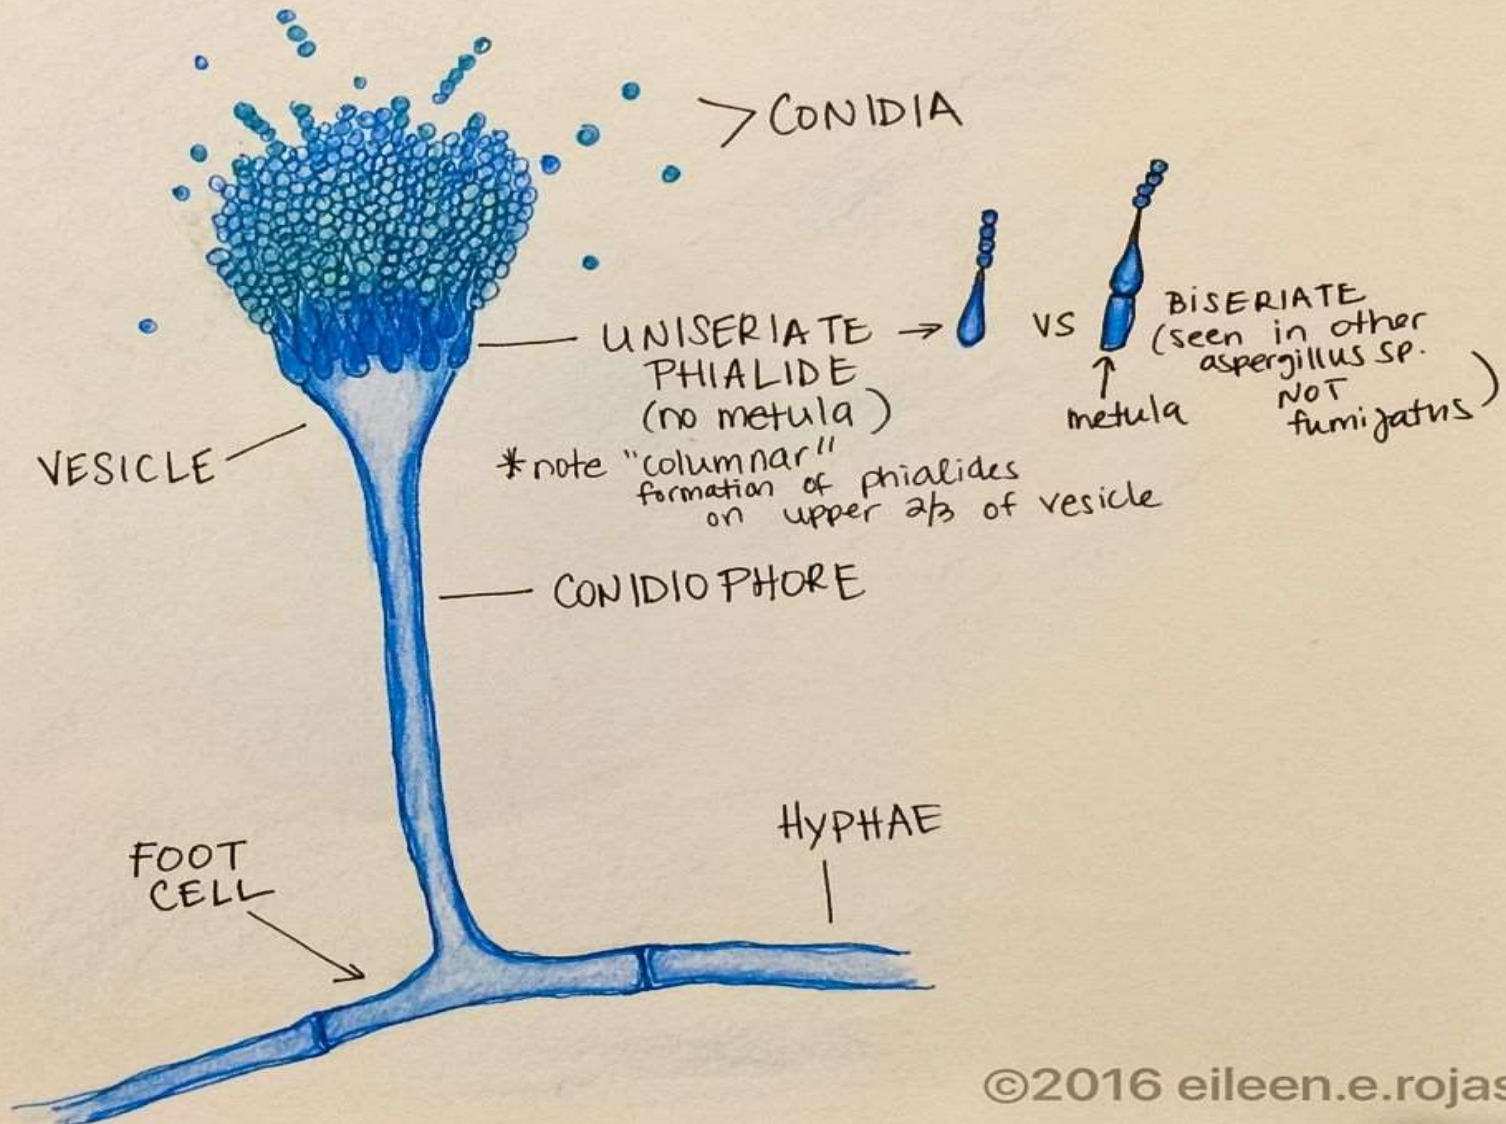 > CONIDIA
UNISERIATE →
PHIALIDE
(no metula)
VS
BISERIATE
(seen in other
aspergillus sp.
NOT
fumigatus)
metula
VESICLE
*note "columnar"
formation of phialides
on upper 2/3 of vesicle
CONIDIOPHORE
HYPHAE
FOOT
CELL
©2016 eileen.e.rojas